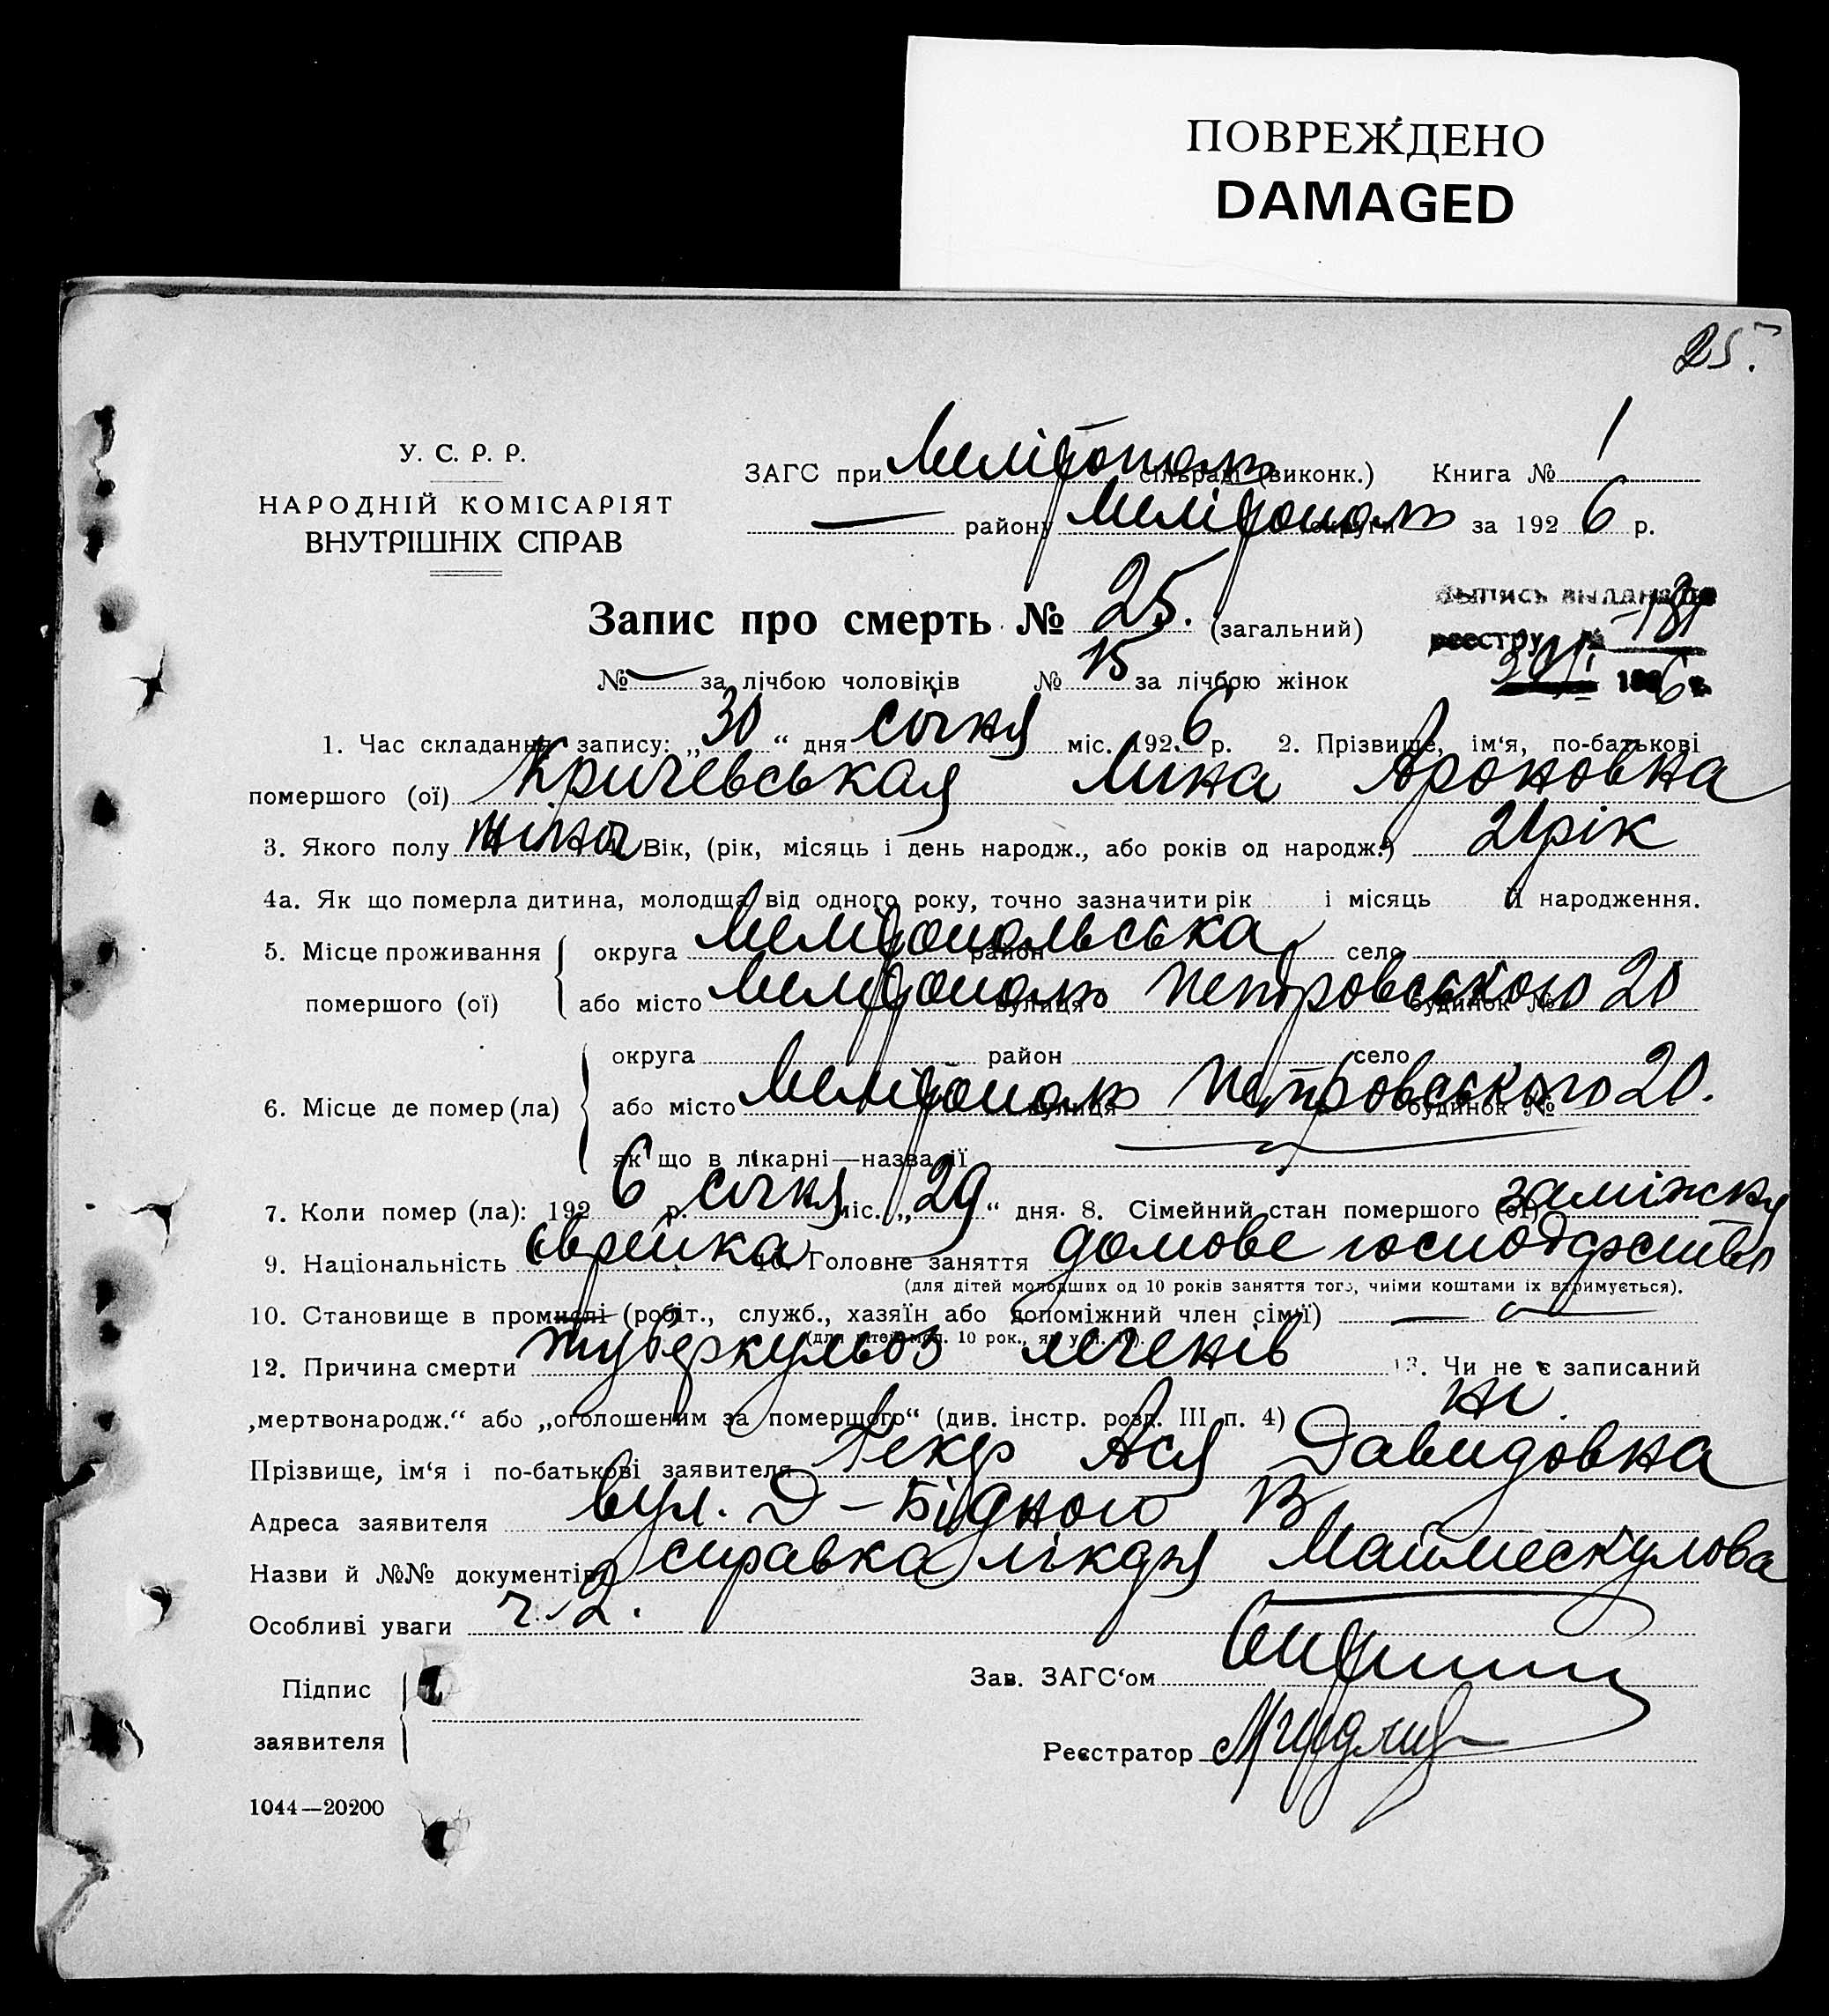 ПОВРЕЖДЕНО
DAMAGED
25.
У. С. Р. Р.
НАРОДНІЙ КОМІСАРІЯТ
ВНУТРІШНІХ СПРАВ
ЗАГС при Мелітополь сільраді (виконк.) Книга № 1
— району Мелітополь округи за 1926 р.
Запис про смерть № 25. (загальний)
реестру №
1926 г.
№ — за лічбою чоловіків № 15 за лічбою жінок
1. Час складання запису: „30“ дня січня міс. 1926 р. 2. Прізвище, ім‘я, по-батькові
помершого (ої) Кричевськая Лина Ароновна
3. Якого полу жіноч 4. Вік, (рік, місяць і день народж., або років од народж.) 21 рік
4а. Як що померла дитина, молодща від одного року, точно зазначити рік і місяць її народження.
5. Місце проживання округа Мелітопольська район село
помершого (ої) або місто Мелітополь вулиця Петровського будинок № 20
округа район село
6. Місце де помер (ла) або місто Мелітополь вулиця Петровського будинок № 20.
як що в лікарні—назва її
7. Коли помер (ла): 1926 р. січня міс. „29“ дня. 8. Сімейний стан помершого (ої) заміжня
9. Національність єврейка 10. Головне заняття домове господарство
(для дітей молодших од 10 років заняття того, чиіми коштами їх втримується).
10. Становище в промислі (робіт., служб., хазяїн або допоміжний член сім‘ї) —
(для дітей мол. 10 рок., як у п. 10).
12. Причина смерти туберкульоз легенів 13. Чи не є записаний
„мертвонародж.“ або „оголошеним за помершого“ (див. інстр. розд. III п. 4) ні.
Прізвище, ім‘я і по-батькові заявителя Ася Давидовна
Адреса заявителя вул. Д-Бідного 13
Назви й №№ документів справка лікаря Маймескулова
Особливі уваги ч. 2.
Підпис
заявителя
Зав. ЗАГС‘ом
Реєстратор
1044—20200